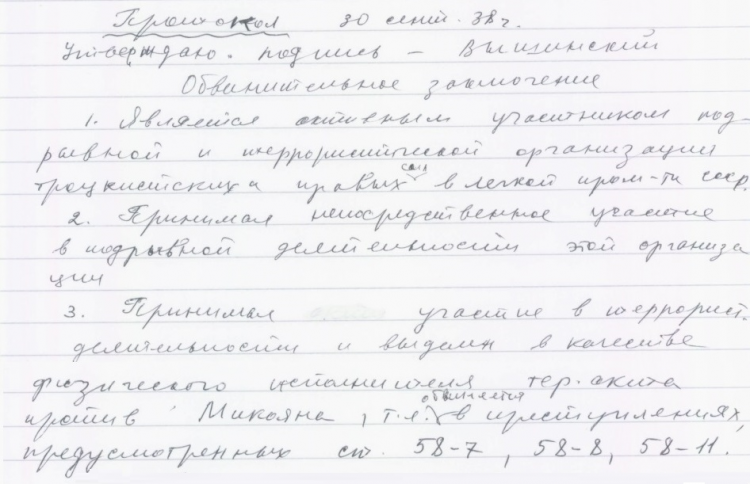 Протокол 30 сент. 38 г.
Утверждаю. подпись – Вышинский
Обвинительное заключение
1. Является активным участником под-
рывной и террористической организации
троцкистских и правых сил в легкой пром-ти ссср
2. Принимал непосредственное участие
в подрывной деятельности этой организа
ции
3. Принимал участие в террорист.
деятельности и выделен в качестве
физического исполнителя тер. акта
против Микояна, т.е. обвиняется в преступлениях,
предусмотренных ст. 58-7, 58-8, 58-11.